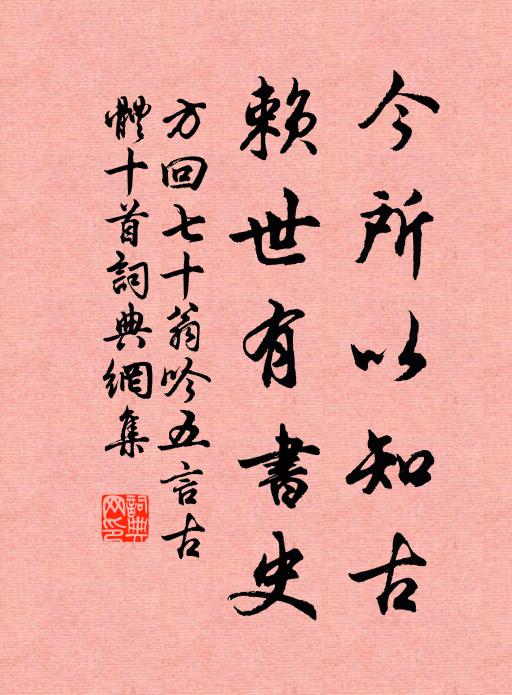 今所以知古
賴世有書史
方回七十翁吟五言古
體十首詞典網集
詞典
网印